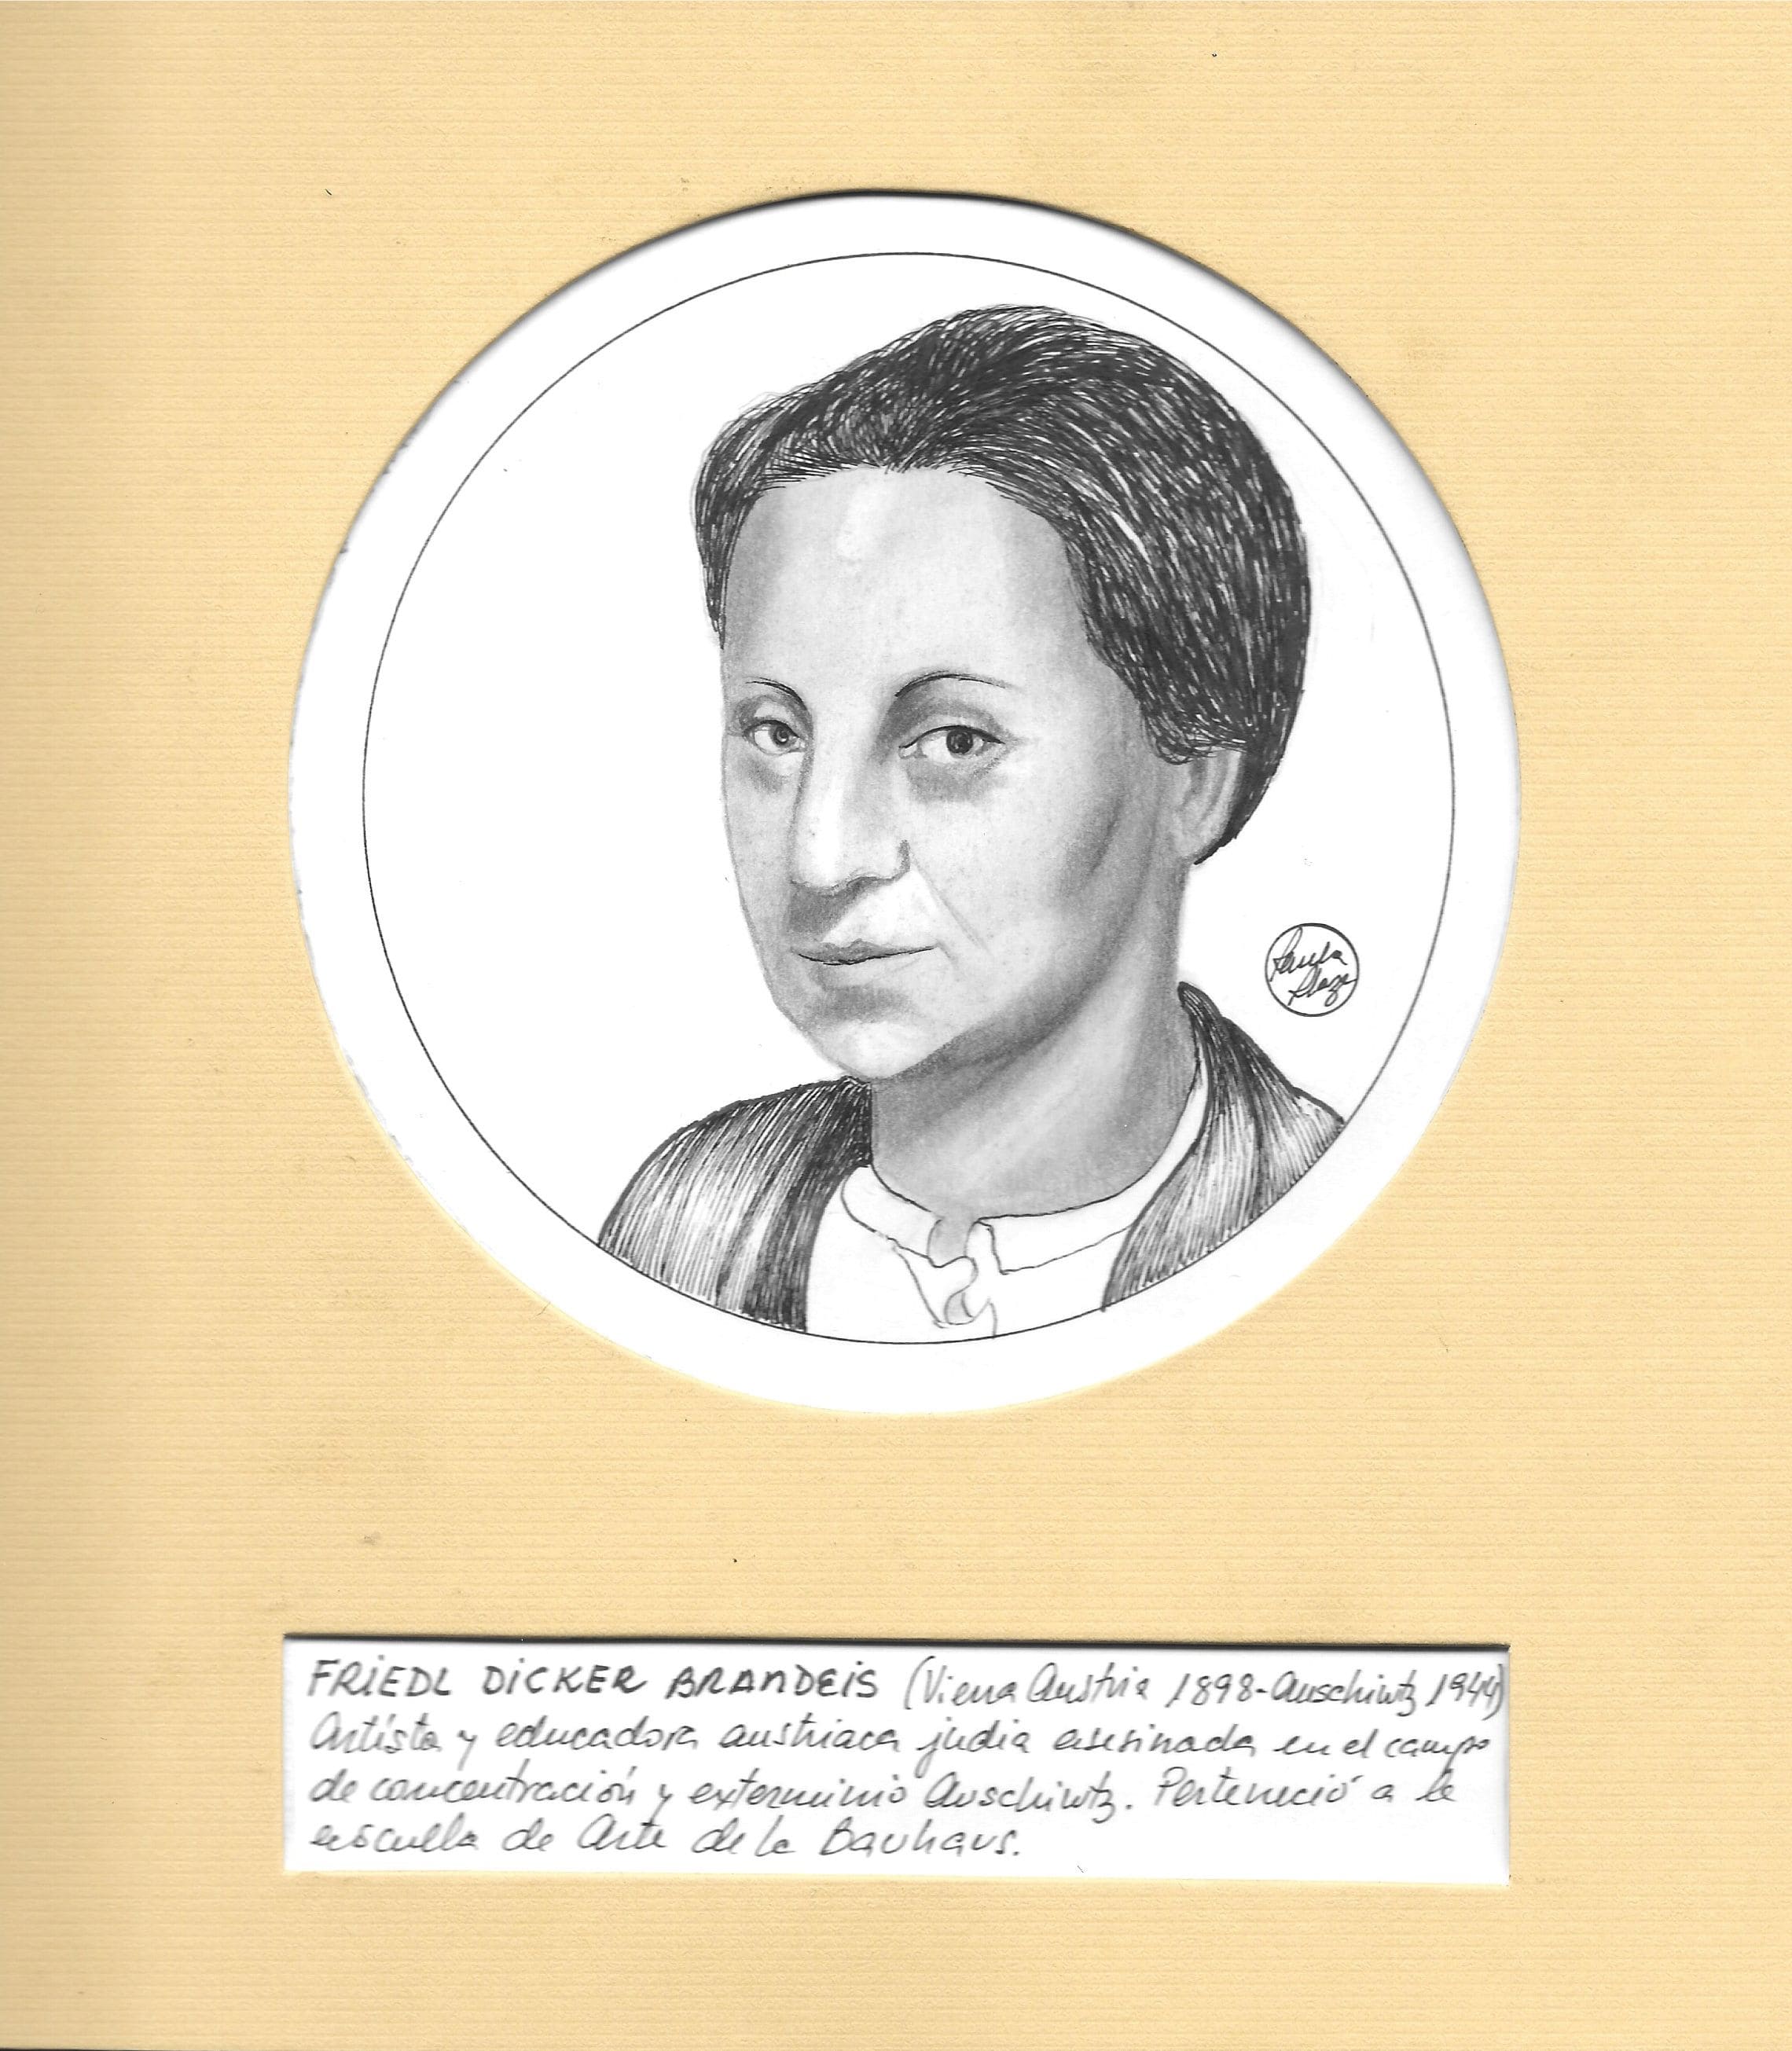 FRIEDL DICKER BRANDEIS (Viena Austria 1898-Auschiwtz 1944)
Artísta y educadora austriaca judia asesinada en el campo
de concentración y exterminio Auschiwtz. Perteneció a la
escuella de Arte de la Bauhaus.